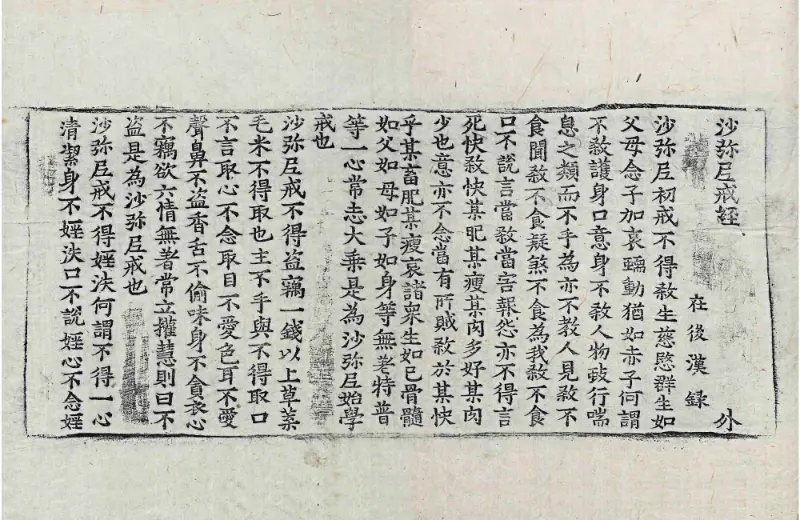 沙弥尼戒経 外
在後漢録
沙弥尼初戒不得殺生慈愍群生如
父母念子加哀蠕動猶如赤子何謂
不殺護身口意身不殺人物蚑行喘
息之類而不手為亦不教人見殺不
食聞殺不食疑煞不食為我殺不食
口不説言當殺當害報怨亦不得言
死快殺快某肥某瘦某肉多好某肉
少也意亦不念當有所賊殺於某快
乎某畜肥某瘦哀諸衆生如已骨髓
如父如母如子如身等無差特普
等一心常志大乗是為沙弥尼始學
戒也
沙弥尼戒不得盗竊一錢以上草葉
毛米不得取也主不手與不得取口
不言取心不念取目不愛色耳不愛
聲鼻不盗香舌不偷味身不貪衣心
不竊欲六情無著常立權慧則曰不
盗是為沙弥尼戒也
沙弥尼戒不得婬泆何謂不得一心
清潔身不婬泆口不説婬心不念婬